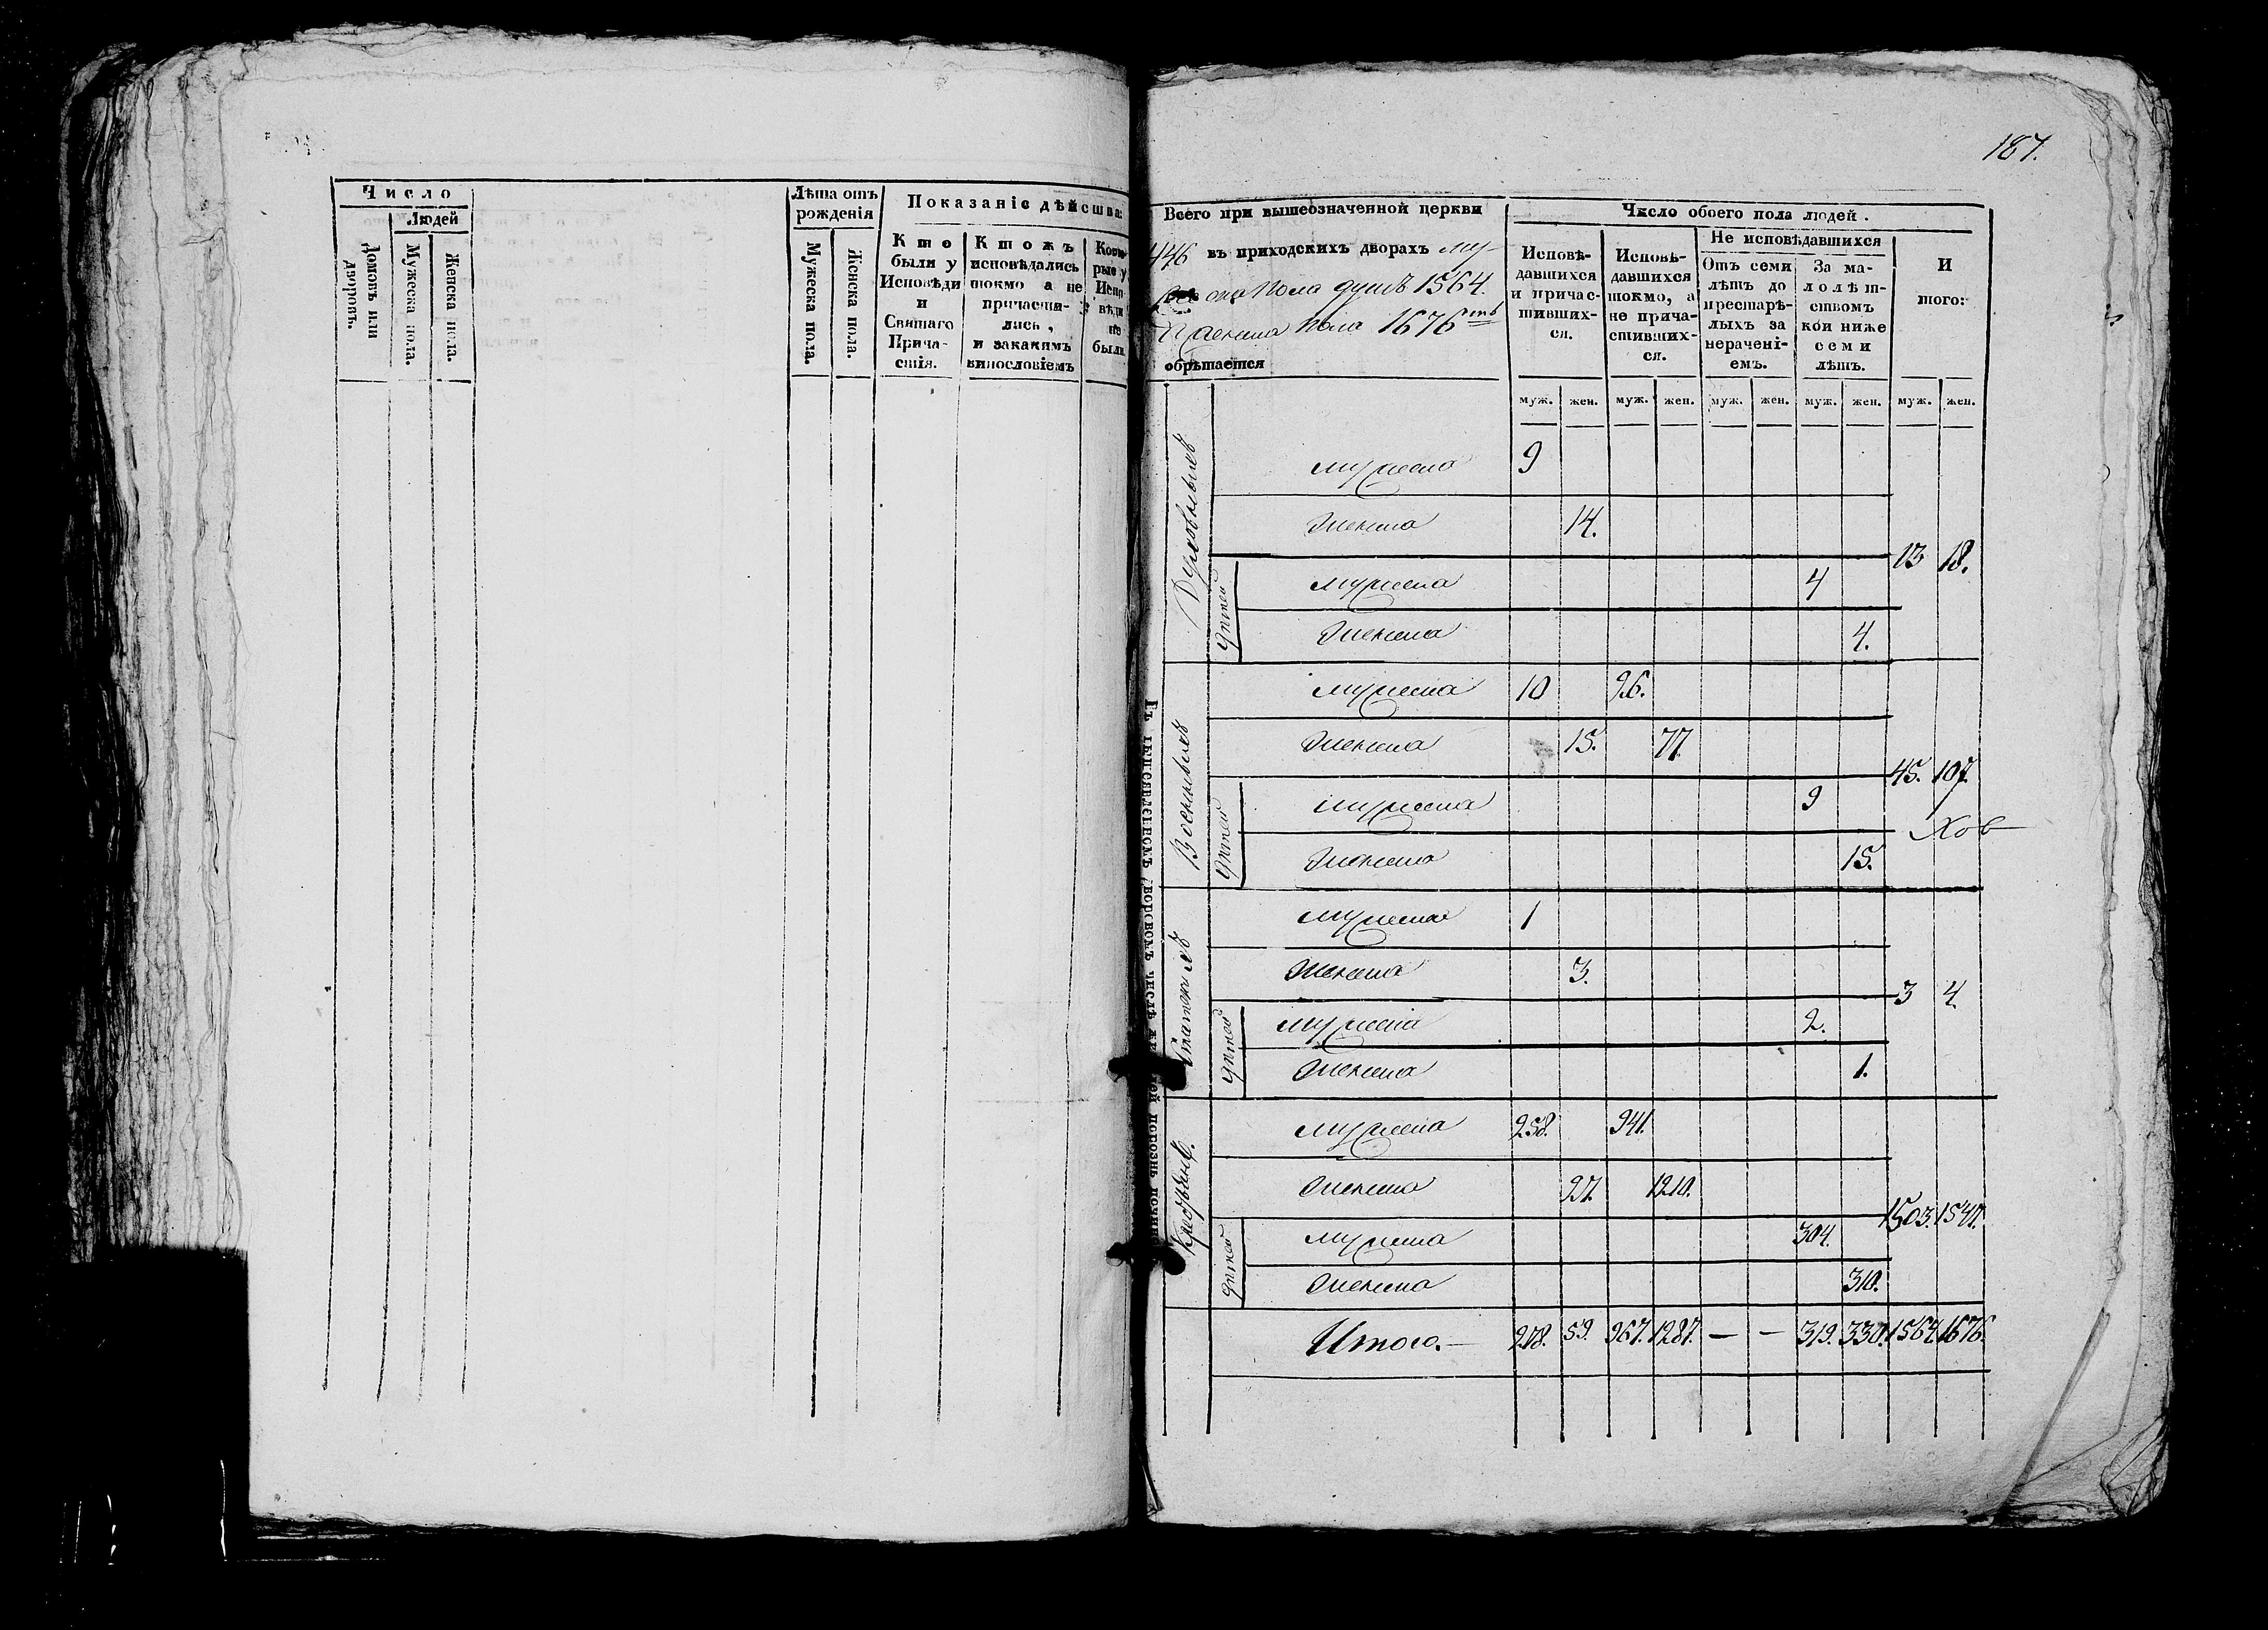 Число
Людей
Домовъ или дворовъ.
Мужеска пола.
Женска пола.
Лѣта отъ
рожденія
Мужеска пола.
Женска пола.
Показаніе дѣйства:
Кто
были у
Исповѣди
и
Святаго
Прича-
стія.
Ктожъ
исповѣдались
токмо а не
причасти-
лись,
и закакимъ
винословіемъ
Кото-
рые у
Испо-
вѣди
не
были
187.
Всего при вышеозначенной церкви
446 въ приходскихъ дворахъ му-
ска пола душъ 1564.
Женска пола 1676
обрѣтается
Число обоего пола людей.
Исповѣ-
давшихся
и причас-
тивших-
ся.
Исповѣ-
давшихся
токмо, а
не прича-
стивших-
ся.
Не исповѣдавшихся
Отъ семи
лѣтъ до
престарѣ-
лыхъ за
нерачені-
емъ.
За ма-
лолѣт-
ствомъ
кои ниже
семи
лѣтъ.
И
того:
муж. жен. муж. жен. муж. жен. муж. жен. муж. жен.
Духовныхъ
мужеска 9
Женска 14.
13 18.
Дѣтей
мужеска 4
Женска 4.
Военныхъ
мужеска 10 26.
Женска 15. 77.
45. 107.
Дѣтей
мужеска 9
Хов
Женска 15.
Статскихъ
мужеска 1
Женска 3.
3 4.
Дѣтей
мужеска 2.
Женска 1.
Крестьянъ.
мужеска 258. 941.
Женска 27. 1210.
1503. 1547.
Дѣтей
мужеска 304.
Женска 310.
Итого. 278. 59. 967. 1287. — — 319. 330. 1564. 1676.